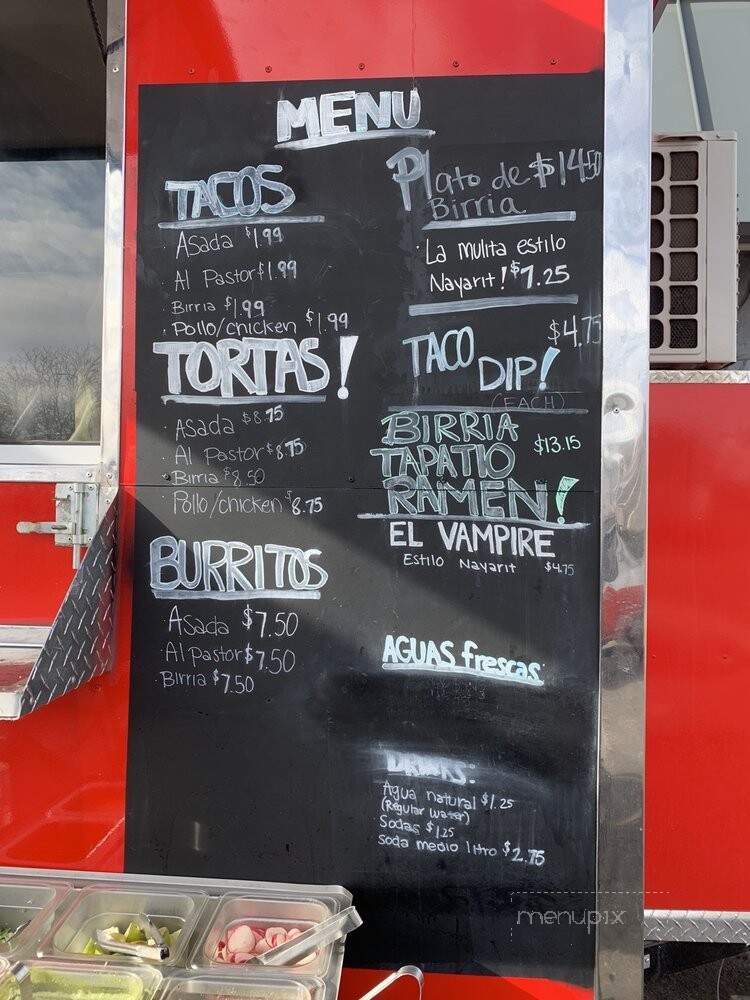 MENU
TACOS
Asada $1.99
Al Pastor $1.99
Birria $1.99
Pollo/chicken $1.99
TORTAS!
Asada $8.75
Al Pastor $8.75
Birria $8.50
Pollo/chicken $8.75
BURRITOS
Asada $7.50
Al pastor $7.50
Birria $7.50
Plato de $14.50
Birria
La mulita estilo
Nayarit! $7.25
TACO DIP! $4.75
(EACH)
BIRRIA $13.15
TAPATIO
RAMEN!
EL VAMPIRE
Estilo Nayarit $4.75
AGUAS frescas
DRINKS:
Agua natural $1.25
(Regular water)
Sodas $1.25
soda medio litro $2.75
menupix